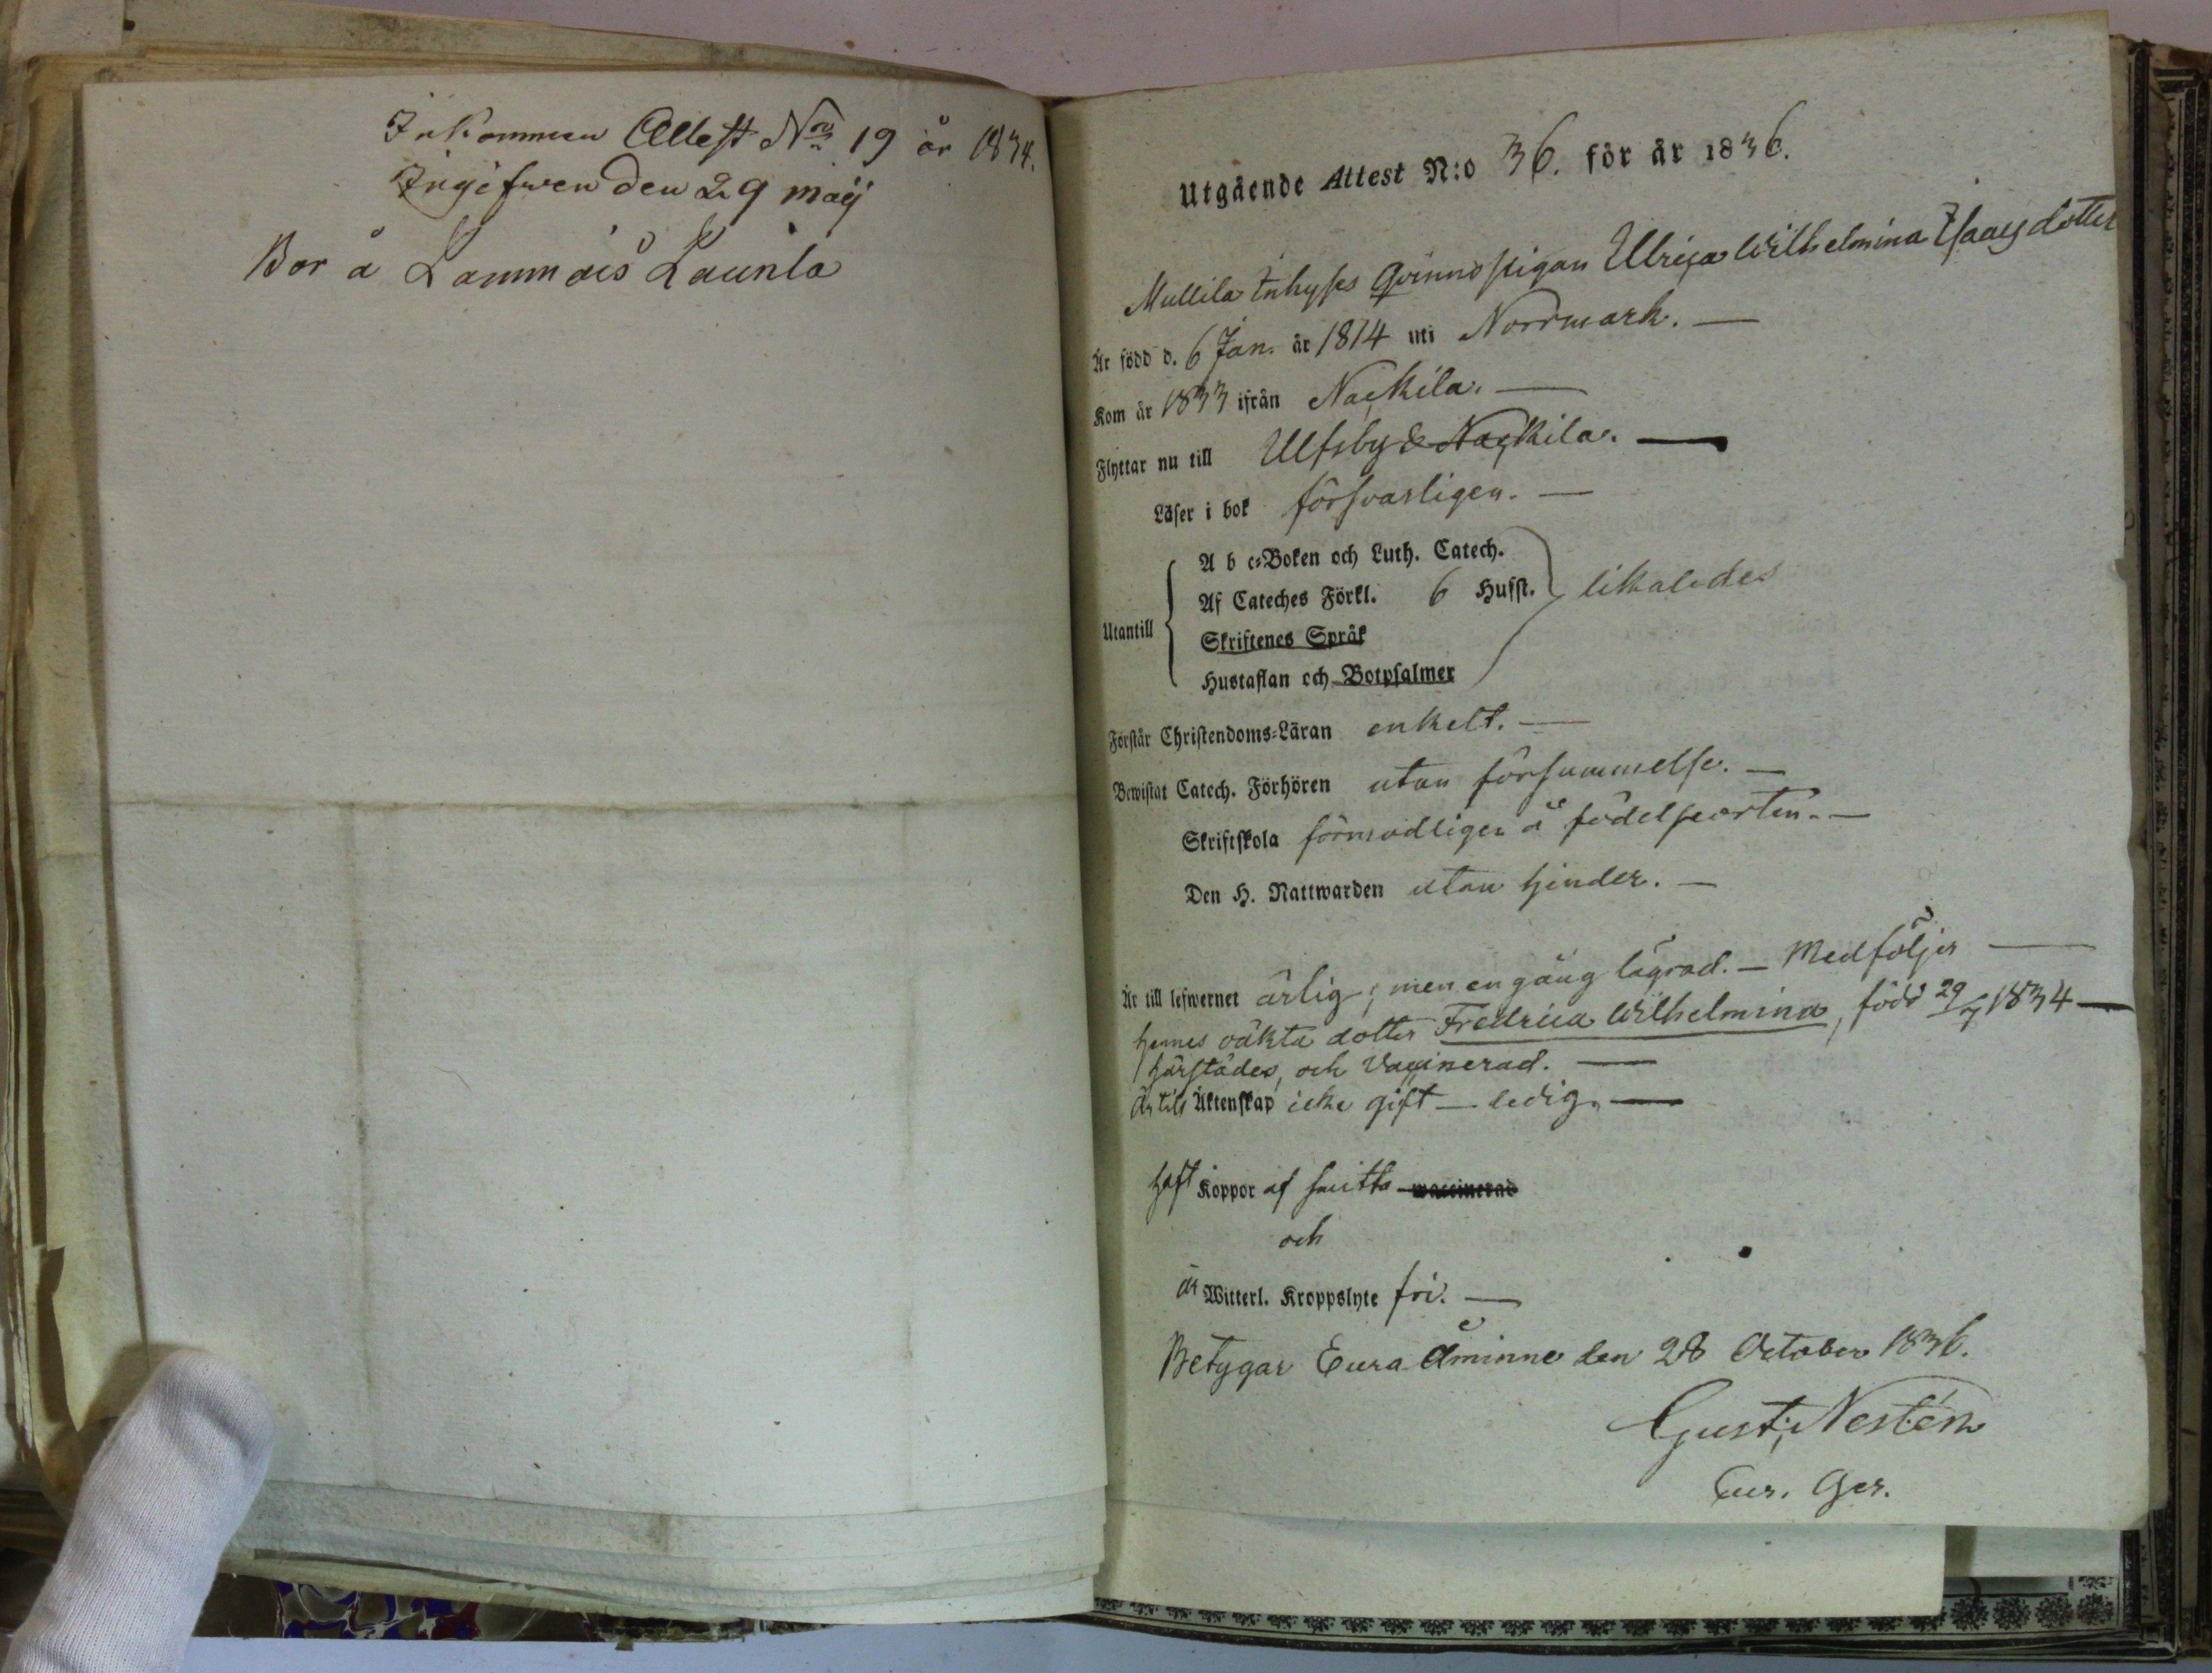 Inkommen Attest No 19 år 1834.
Ingifwen den 29 maij
Bor å Lammais Launla
Utgående Attest N:o 36. för år 1836.
Mullila Inhyses Qvinnspigan Ulrica Wilhelmina Isaacsdotter
Är född d. 6 Jan. år 1814 uti Norrmark. —
Kom år 1833 ifrån Nackila. —
Flyttar nu till Ulfsby & Nackila. —
Läser i bok försvarligen. —
A b c-Boken och Luth. Catech.
Af Cateches Förkl. 6 Husst.
likaledes
Utantill
Skriftenes Språk
Hustaflan och Botpsalmer
Förstår Christendoms-Läran enkelt. —
Bewistat Catech. Förhören utan försummelse. —
Skriftskola förmodligen å födelseorten. —
Den H. Nattwarden utan hinder. —
Är till lefwernet ärlig; men en gång lägrad. — Medföljer —
hennes oäkta dotter Fredrica Wilhelmina, född 29/7 1834 —
härstädes, och Vaccinerad. —
Är till Äktenskap icke gift — ledig. —
haft Koppor af smitta waccinerad
och
är Witterl. Kroppslyte fri. —
Betygar Eura Åminne den 28 October 1836.
Gust. Nestén